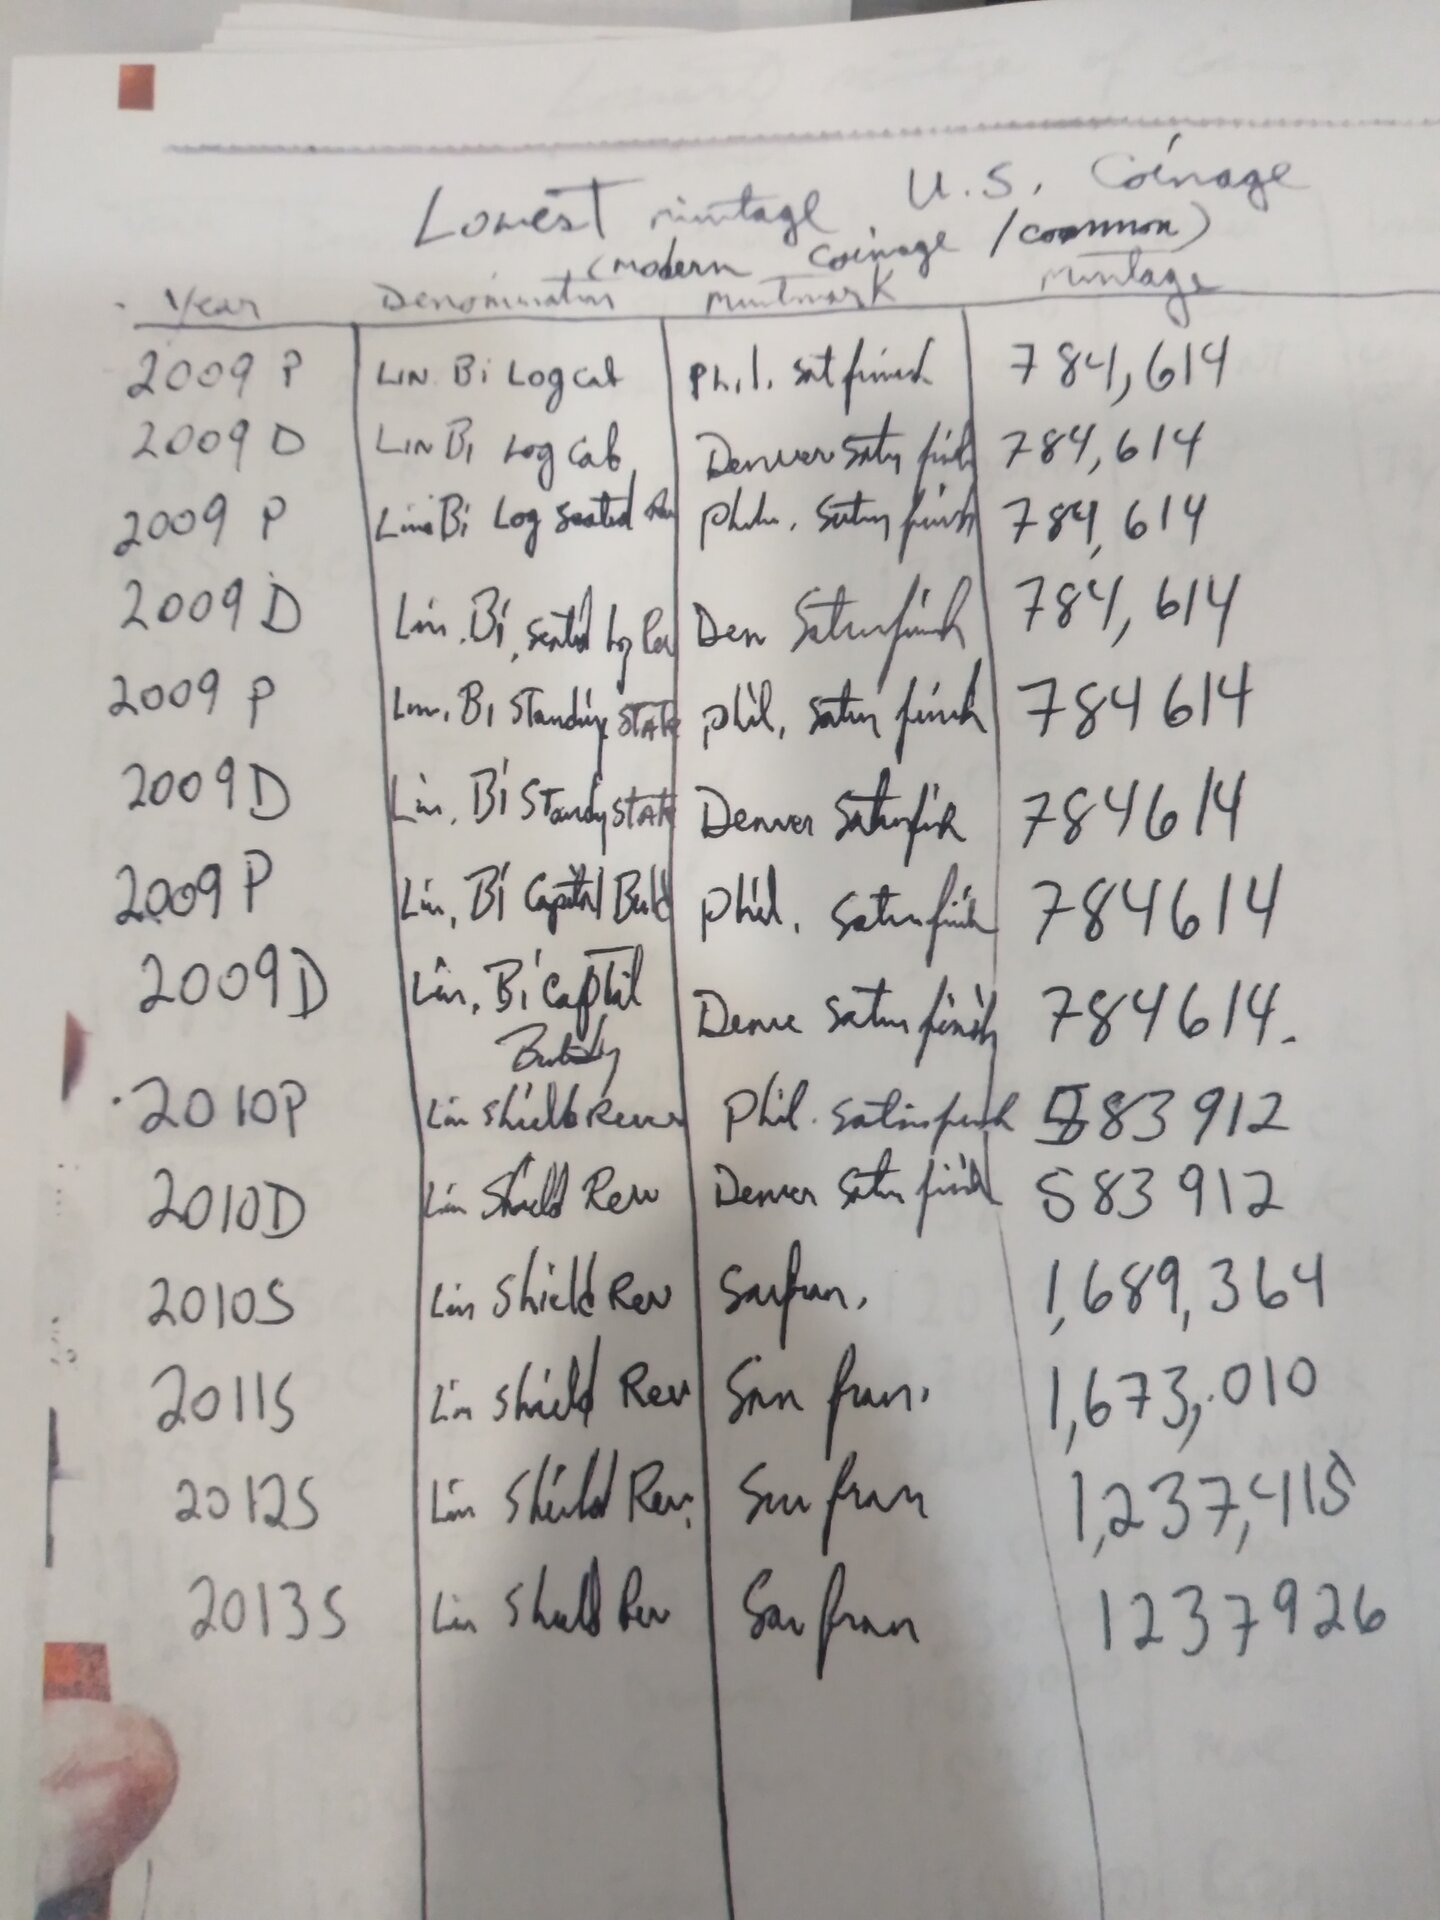 Lowest mintage U.S. Coinage
(modern coinage / common)
Year Denomination mintmark mintage
2009 P LIN Bi Log cab Phil. sat finish 784,614
2009 D LIN Bi Log Cab Denver Satin finish 784,614
2009 P Lin Bi Log Seated Phil. Satin finish 784,614
2009 D Lin. Bi, seated Log Den Satin finish 784,614
2009 P Lin. Bi Standing STATE Phil. Satin finish 784614
2009 D Lin. Bi Standing STATE Denver Satin finish 784614
2009 P Lin, Bi Capital Build Phil. Satin finish 784614
2009 D Lin, Bi Capital Denver Satin finish 784614.
Building
2010P Lin Shield Rever Phil. Satin finish 583912
2010D Lin Shield Rev Denver Satin finish 583912
2010S Lin Shield Rev San fran. 1,689,364
2011S Lin Shield Rev San fran. 1,673,010
2012S Lin Shield Rev. San fran 1,237,415
2013S Lin Shield Rev San fran 1237926